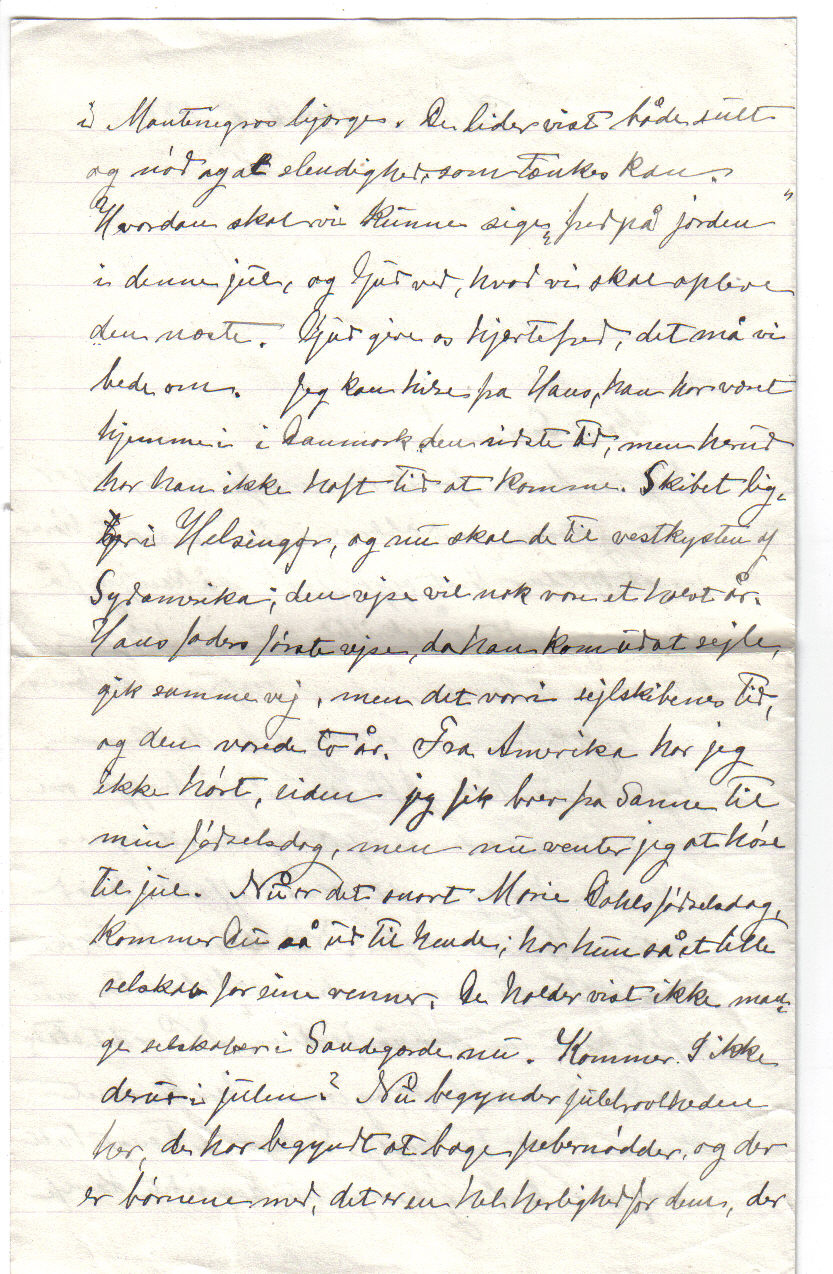 i Montenegros bjærge. De lider vist både sult
og nód og al elendighed, som tænkes kan.
Hvordan skal vi kunne sige „fred på jorden"
i denne jul, og Gud ved, hvad vi skal opleve
den næste. Gud give os hjertefred, det må vi
bede om. Jeg kan hilse fra Hans, han har været
hjemme i Danmark den sidste tid, men herud
har han ikke haft tid at komme. Skibet lig-
ger i Helsingør, og nu skal de til vestkysten af
Sydamerika; den rejse vil nok vare et halvt år.
Hans faders fórste rejse, da han kom ud at sejle,
gik samme vej, men det var i sejlskibenes tid,
og den varede to år. Fra Amerika har jeg
ikke hórt, siden jeg fik brev fra Sanne til
min fódselsdag, men nu venter jeg at hóre
til jul. Nu er det snart Marie Dahls fódselsdag,
kommer Du så ud til hende; har hun så et lille
selskab for sine venner. De holder vist ikke man-
ge selskaber i Sandegårde nu. Kommer I ikke
derud i julen? Nu begynder juletravlheden
her, de har begyndt at bage pebernódder, og der
er bórnene med, det er en hel herlighed for dem, der